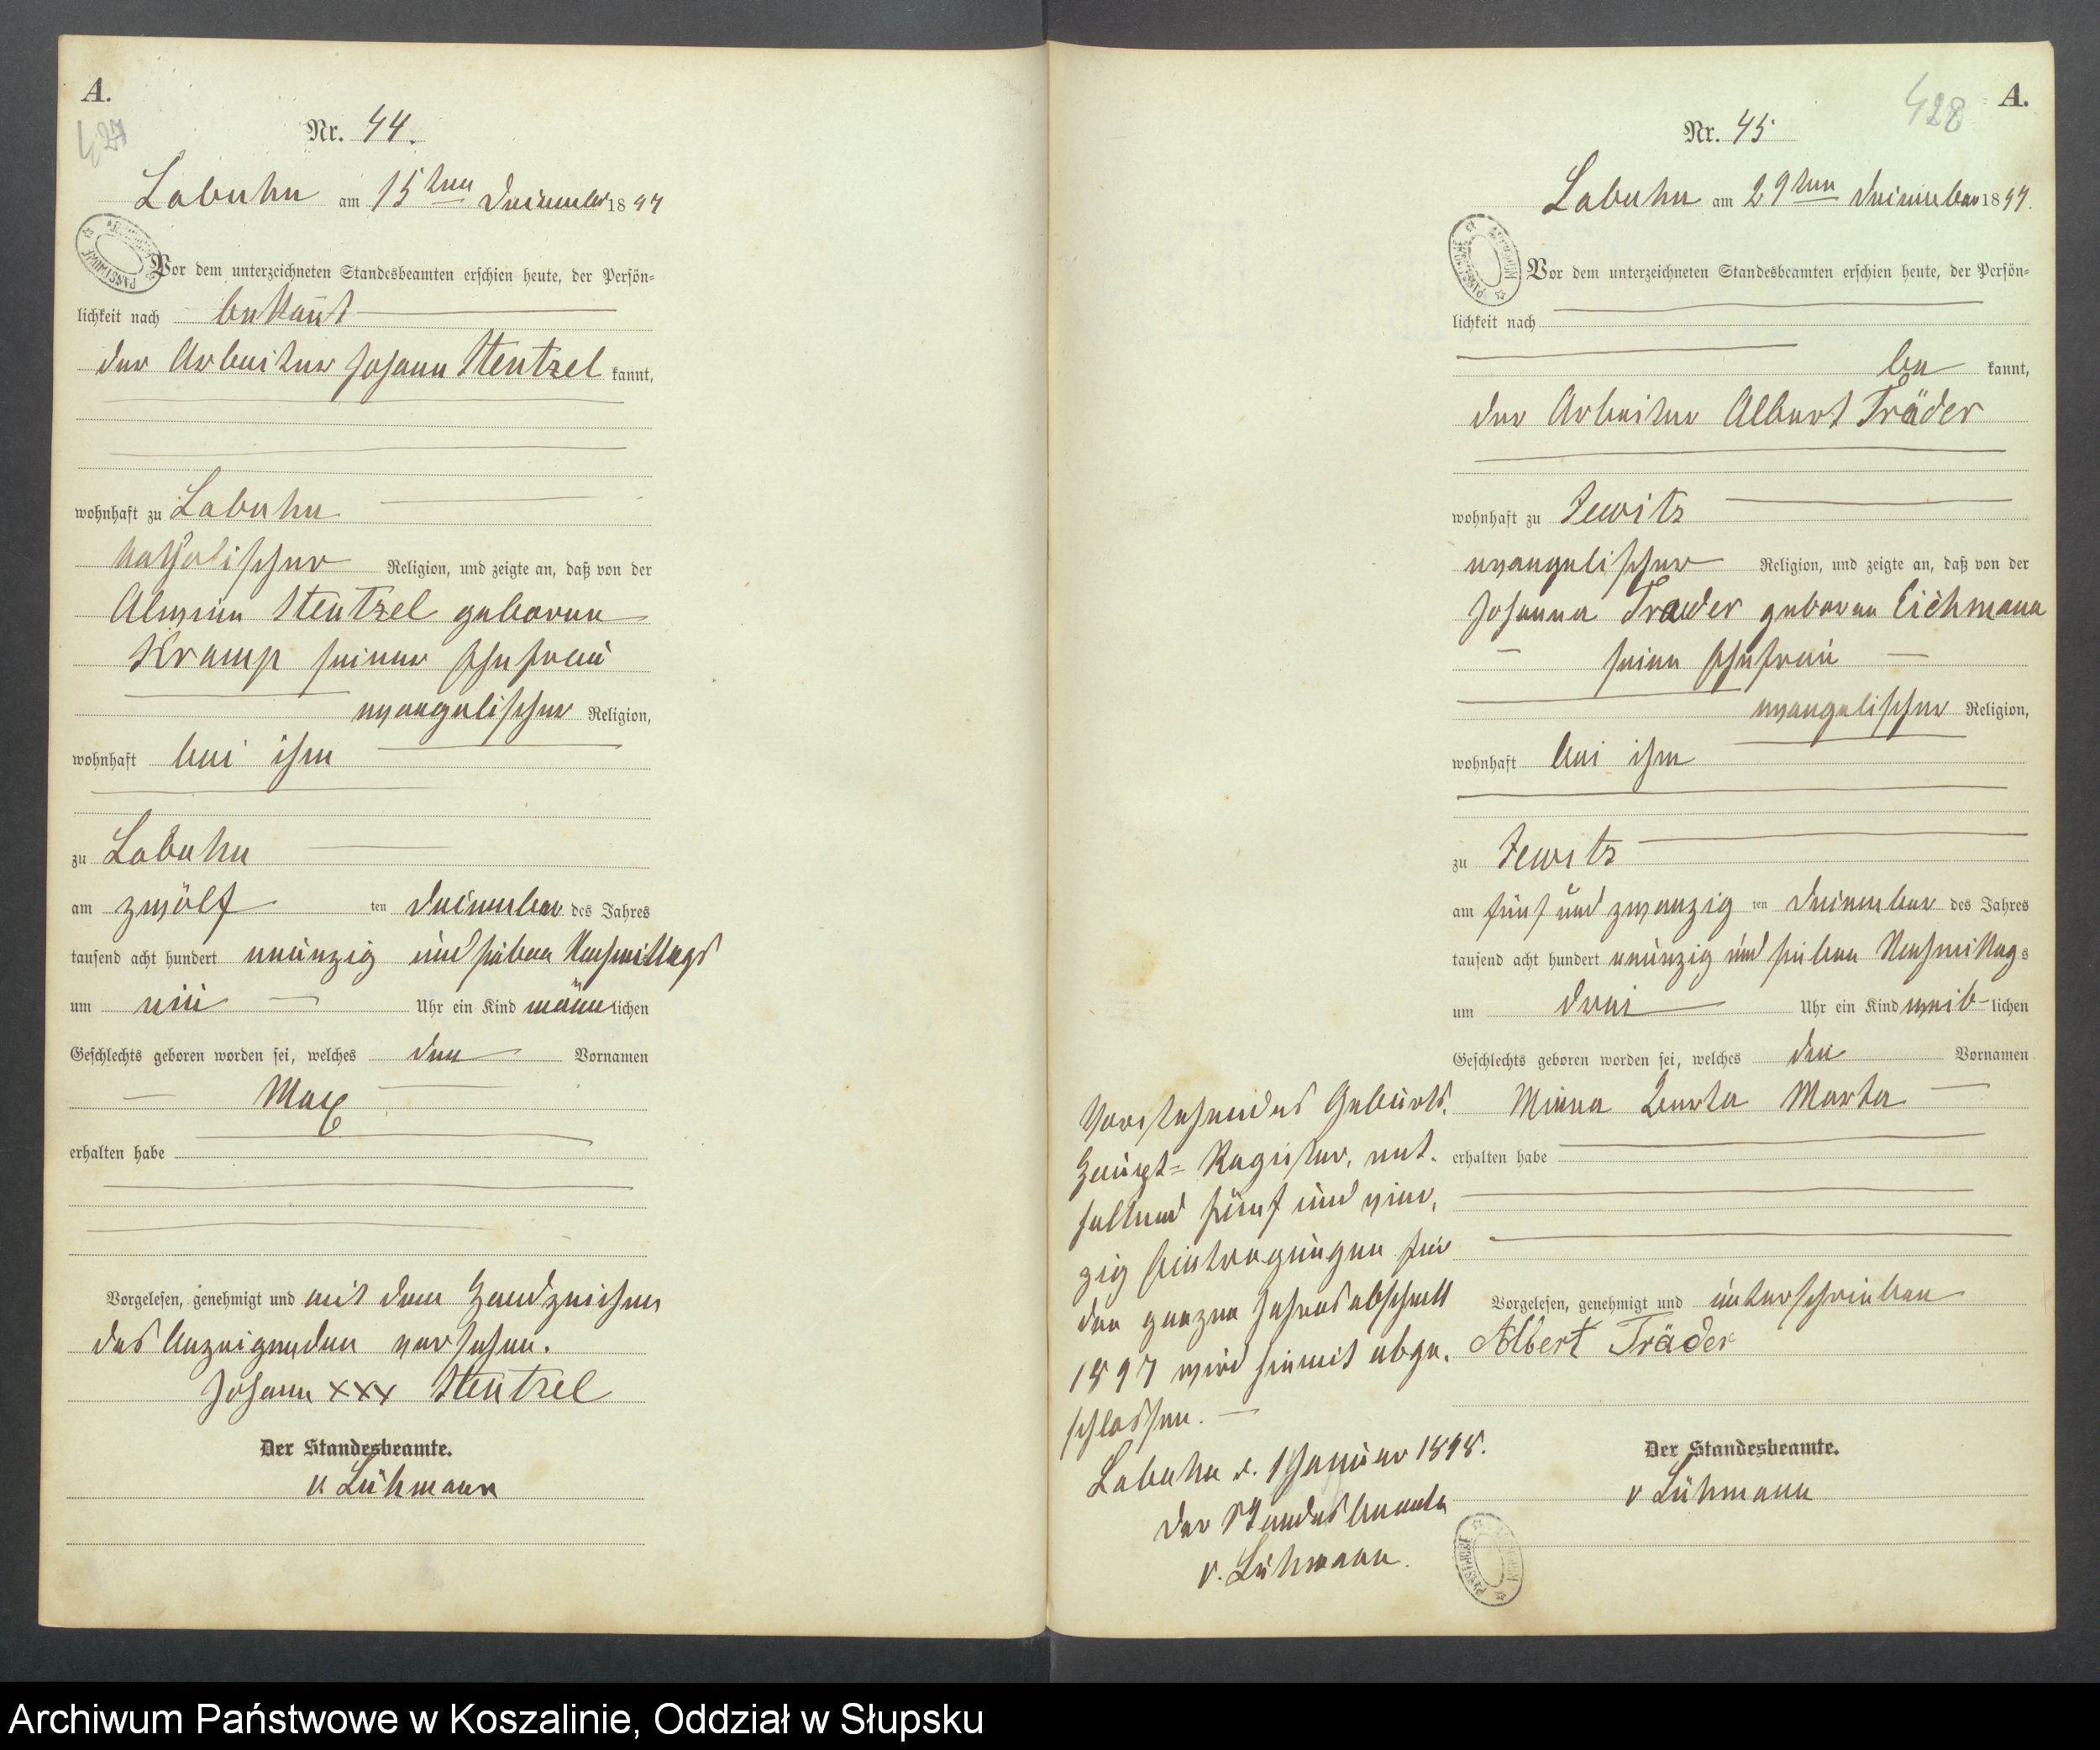 A.
427
Nr. 44.
Labuhn am 15ten Dezember 1897
Vor dem unterzeichneten Standesbeamten erschien heute, der Persön=
lichkeit nach bekannt
der Arbeiter Johann Stentzel kannt,
wohnhaft zu Labuhn
katholischer Religion, und zeigte an, daß von der
Stentzel geborene
Kramp seiner Ehefrau
evangelischer Religion,
wohnhaft bei ihm
zu Labuhn
am zwölf ten Dezember des Jahres
tausend acht hundert neunzig und sieben Nachmittags
um Uhr ein Kind männlichen
Geschlechts geboren worden sei, welches den Vornamen
Max
erhalten habe
Vorgelesen, genehmigt und mit dem Handzeichen
des Anzeigenden versehen.
Johann xxx Stentzel
Der Standesbeamte.
v Lühmann
428
A.
Nr. 45
Labuhn am 29ten Dezember 1897.
Vor dem unterzeichneten Standesbeamten erschien heute, der Persön=
lichkeit nach
be kannt,
der Arbeiter Albert Träder
wohnhaft zu Jewitz
evangelischer Religion, und zeigte an, daß von der
Johanna Traeder geborene Eichmann
seine Ehefrau
evangelischer Religion,
wohnhaft bei ihm
zu Jewitz
am fünf und zwanzig ten Dezember des Jahres
tausend acht hundert neunzig und sieben Nachmittags
um drei Uhr ein Kind weib-lichen
Geschlechts geboren worden sei, welches die Vornamen
Minna Berta Marta
erhalten habe
Vorgelesen, genehmigt und unterschrieben
Albert Träder
Der Standesbeamte.
v Lühmann
Vorstehendes Geburts-
Haupt=Register, ent-
haltend fünf und vier-
zig Eintragungen für
den ganzen Jahresabschnitt
1897 wird hiermit abge-
schlossen.
Labuhn d. 1 Januar 1898.
Der Standesbeamte
v. Lühmann.
Archiwum Państwowe w Koszalinie, Oddział w Słupsku